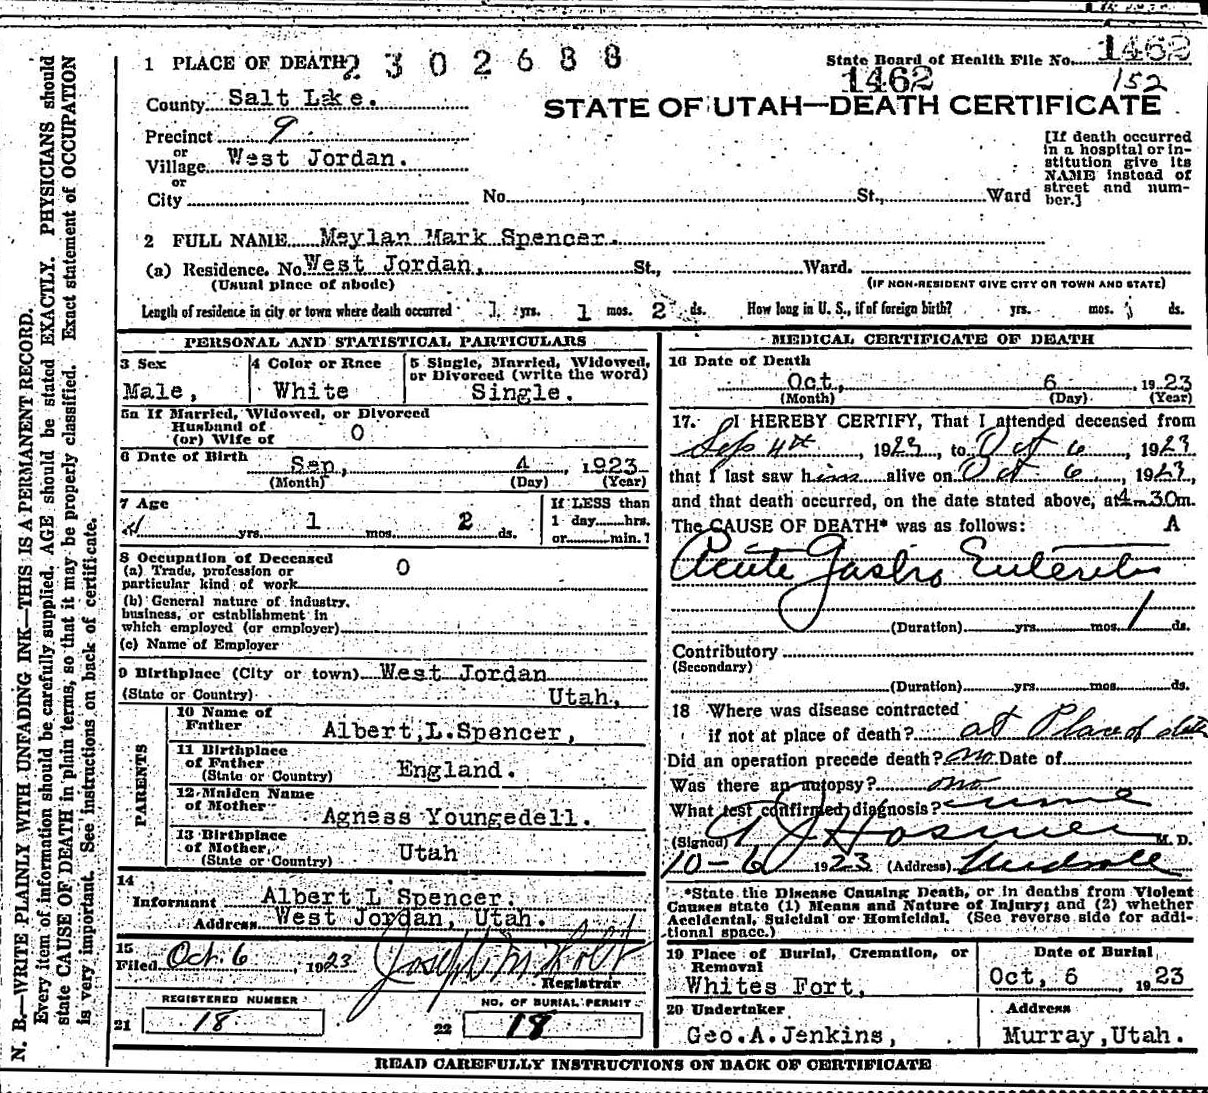 N. B.—WRITE PLAINLY WITH UNFADING INK—THIS IS A PERMANENT RECORD.
Every item of information should be carefully supplied. AGE should be stated EXACTLY. PHYSICIANS should
state CAUSE OF DEATH in plain terms, so that it may be properly classified. Exact statement of OCCUPATION
is very important. See instructions on back of certificate.
1 PLACE OF DEATH 2302688
State Board of Health File No. 1462
1462 152
County Salt Lake.
STATE OF UTAH—DEATH CERTIFICATE
Precinct 9
or
Village West Jordan.
or
City
No. St., Ward
[If death occurred
in a hospital or in-
stitution give its
NAME instead of
street and num-
ber.]
2 FULL NAME Meylan Mark Spencer.
(a) Residence. No. West Jordan, St., Ward.
(Usual place of abode) (IF NON-RESIDENT GIVE CITY OR TOWN AND STATE)
Length of residence in city or town where death occurred yrs. 1 mos. 2 ds. How long in U. S., if of foreign birth? yrs. mos. ds.
PERSONAL AND STATISTICAL PARTICULARS
3 Sex
Male,
4 Color or Race
White
5 Single, Married, Widowed,
or Divorced (write the word)
Single.
5a If Married, Widowed, or Divorced
Husband of
(or) Wife of O
6 Date of Birth
Sep, 4 , 1923
(Month) (Day) (Year)
7 Age
yrs. 1 mos. 2 ds.
If LESS than
1 day hrs.
or min.?
8 Occupation of Deceased
(a) Trade, profession or
particular kind of work O
(b) General nature of industry,
business, or establishment in
which employed (or employer)
(c) Name of Employer
9 Birthplace (City or town) West Jordan
(State or Country) Utah,
PARENTS
10 Name of
Father Albert,L.Spencer,
11 Birthplace
of Father England.
(State or Country)
12 Maiden Name
of Mother Agness Youngedell.
13 Birthplace
of Mother, Utah
(State or Country)
14
Informant Albert L Spencer.
Address West Jordan, Utah.
15
Filed Oct. 6 , 1923 Joseph M Holt
Registrar
REGISTERED NUMBER
21 18
NO. OF BURIAL PERMIT
22 18
MEDICAL CERTIFICATE OF DEATH
16 Date of Death
Oct, 6 , 1923
(Month) (Day) (Year)
17. I HEREBY CERTIFY, That I attended deceased from
Sep 4th , 1923, to Oct 6 , 1923
that I last saw him alive on Oct 6 , 1923,
and that death occurred, on the date stated above, at 4-30m.
The CAUSE OF DEATH* was as follows: A
Acute Gastro Enteretis
(Duration) yrs. mos. 1 ds.
Contributory
(Secondary)
(Duration) yrs. mos. ds.
18 Where was disease contracted
if not at place of death? at Place of
Did an operation precede death? no Date of
Was there an autopsy? no
What test confirmed diagnosis?
(Signed) Hosmer M. D.
10-6 1923 (Address) Midvale
*State the Disease Causing Death, or in deaths from Violent
Causes state (1) Means and Nature of Injury; and (2) whether
Accidental, Suicidal or Homicidal. (See reverse side for addi-
tional space.)
19 Place of Burial, Cremation, or
Removal
Whites Fort,
Date of Burial
Oct, 6 , 1923
20 Undertaker
Geo.A.Jenkins,
Address
Murray,Utah.
READ CAREFULLY INSTRUCTIONS ON BACK OF CERTIFICATE